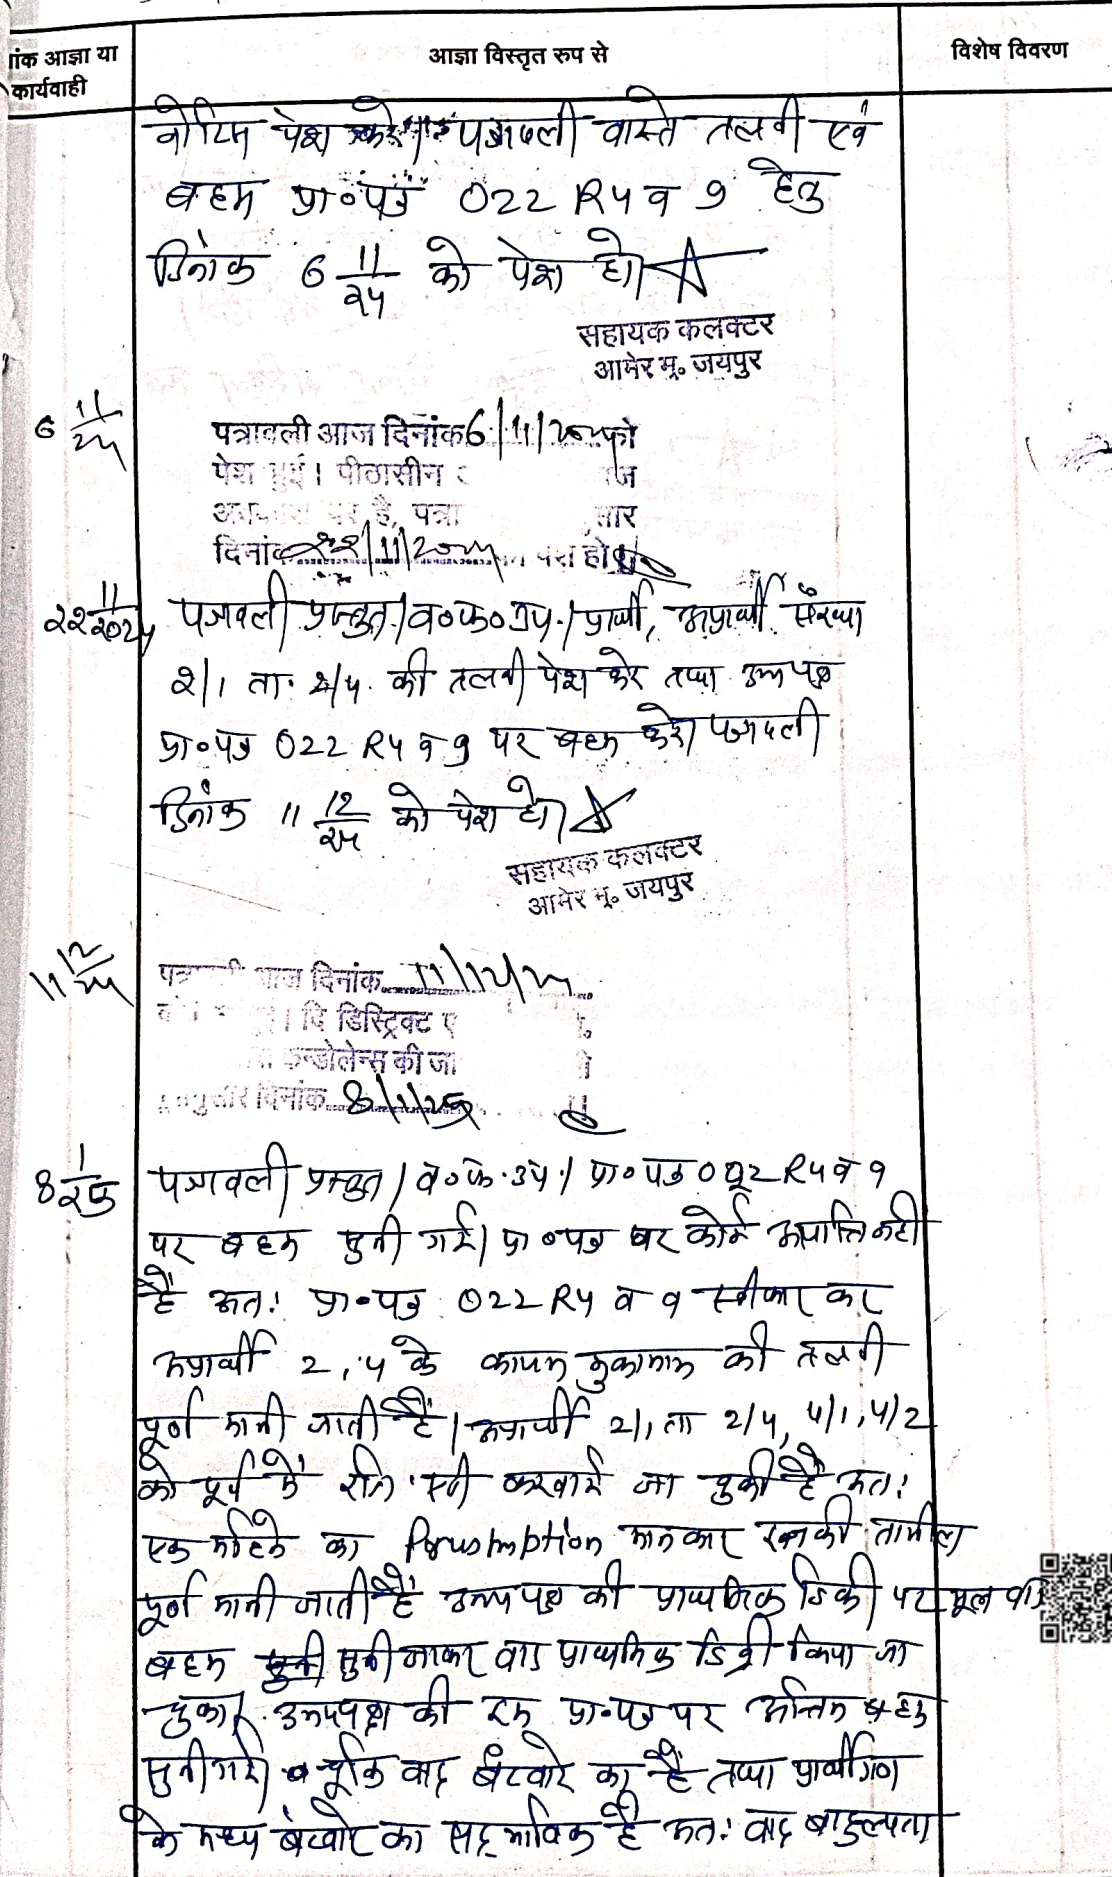 आंक आज्ञा या
कार्यवाही
आज्ञा विस्तृत रुप से
विशेष विवरण
नोटिस पेश करे। पत्रावली वास्ते तलबी एवं
बहस प्रा०पत्र O22 R4 व 9 हेतु
दिनांक 6 11/24 को पेश हो।
सहायक कलक्टर
आमेर मु० जयपुर
6 11/24
पत्रावली आज दिनांक 6/11/2024 को
पेश हुई। पीठासीन
अवकाश पर है, पत्रा
दिनांक 22/11/2024 पेश हो
22 11/2024
पत्रावली प्रस्तुत। व०फ०उप०। प्रार्थी, अप्रार्थी संख्या
2/1 ता. 2/4. की तलबी पेश करे तथा उभयपक्ष
प्रा०पत्र O22 R4 व 9 पर बहस करे। पत्रावली
दिनांक 11 12/24 को पेश हो।
सहायक कलक्टर
आमेर मु० जयपुर
11 12/24
आज दिनांक 11/12/24
। दि डिस्ट्रिक्ट ए
कन्डोलेन्स की जा
दिनांक 8/1/25
8 1/25
पत्रावली प्रस्तुत। व०फ.उप.। प्रा०पत्र O22 R4 व 9
पर बहस सुनी गई। प्रा०पत्र पर कोई आपत्ति नही
है अत: प्रा०पत्र O22 R4 व 9 स्वीकार कर
अप्रार्थी 2, 4 के कायम मुकामान की तलबी
पूर्ण मानी जाती है। अप्रार्थी 2/1 ता 2/4, 4/1, 4/2
को पूर्व में रजि. एडी करवाई जा चुकी है अत:
एक महिने का Presumption मानकर इनकी तामील
पूर्ण मानी जाती है उभयपक्ष की प्राथमिक डिक्री पर मूल वाद
बहस सुनी जाकर वाद प्राथमिक डिक्री किया जा
चुका। उभयपक्ष की इस प्रा०पत्र पर अंतिम बहस
सुनी गई। चूंकि वाद बंटवारे का है तथा प्रार्थीगण
के मध्य बंटवारे का सद्भाविक है अत: वाद बाहुल्यता